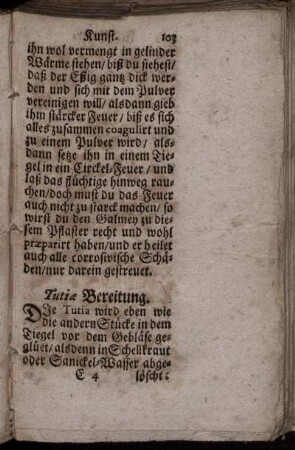 Kunst. 103
ihn wol vermengt in gelinder
Wärme stehen/ biß du siehest/
daß der Eßig gantz dick wer-
den und sich mit dem Pulver
vereinigen will/ alsdann gieb
ihm stärcker Feuer/ biß es sich
alles zusammen coagulirt und
zu einem Pulver wird/ als-
dann setze ihn in einem Tie-
gel in ein Circkel-Feuer/ und
laß das flüchtige hinweg rau-
chen/ doch must du das Feuer
auch nicht zu starck machen/ so
wirst du den Galmey zu die-
sem Pflaster recht und wohl
præparirt haben/ und er heilet
auch alle corrosivische Schä-
den/ nur darein gestreuet.
Tutiæ Bereitung.
DIe Tutia wird eben wie
die andern Stücke in dem
Tiegel vor dem Gebläse ge-
glüet/ alsdenn in Schellkraut
oder Sanickel-Wasser abge-
E 4 löscht: